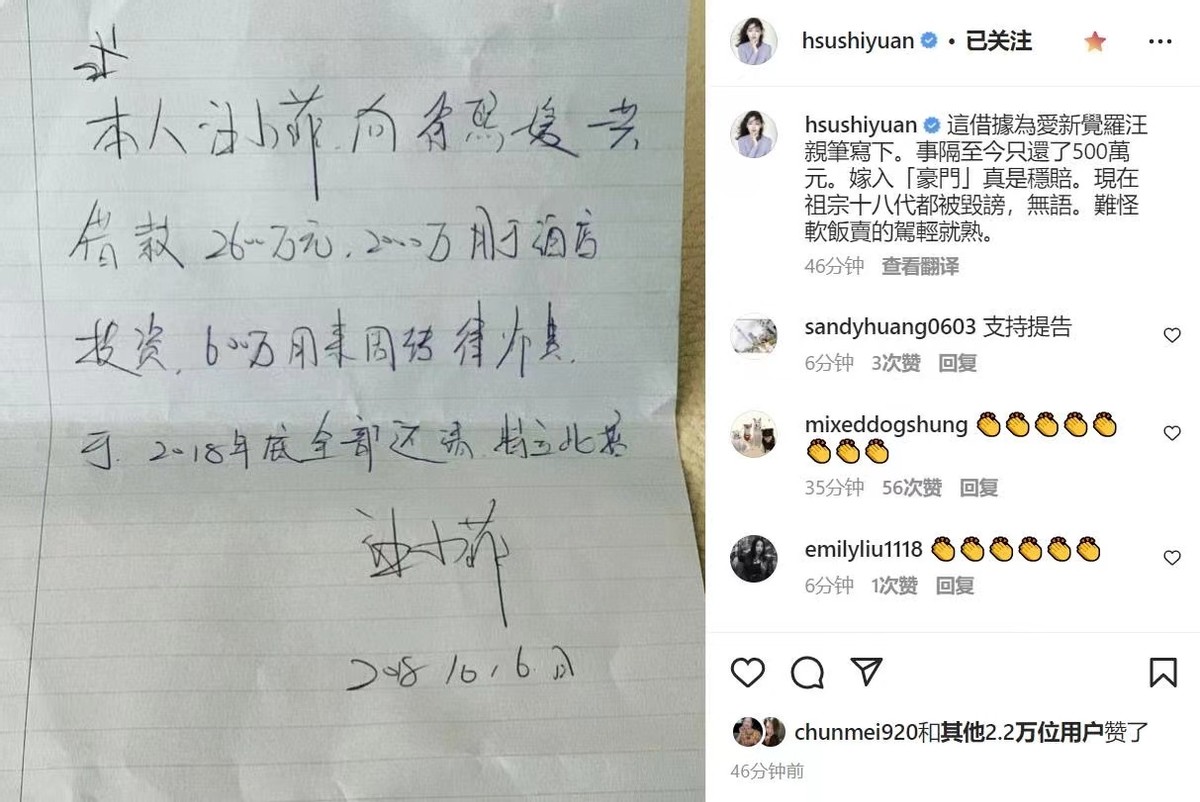 本人汪小菲.向徐熙媛共
借款2600万元.2000万用于酒店
投资.600万用来周转律师费.
于.2018年底全部还清.特立此据
汪小菲
2018.10.6.日
hsushiyuan • 已关注
hsushiyuan 這借據為愛新覺羅汪
親筆寫下。事隔至今只還了500萬
元。嫁入「豪門」真是穩賠。現在
祖宗十八代都被毀謗，無語。難怪
軟飯賣的駕輕就熟。
46分钟 查看翻译
sandyhuang0603 支持提告
6分钟 3次赞 回复
mixeddogshung 👏👏👏👏👏
👏👏👏
35分钟 56次赞 回复
emilyliu1118 👏👏👏👏👏👏
6分钟 1次赞 回复
chunmei920和其他2.2万位用户赞了
46分钟前